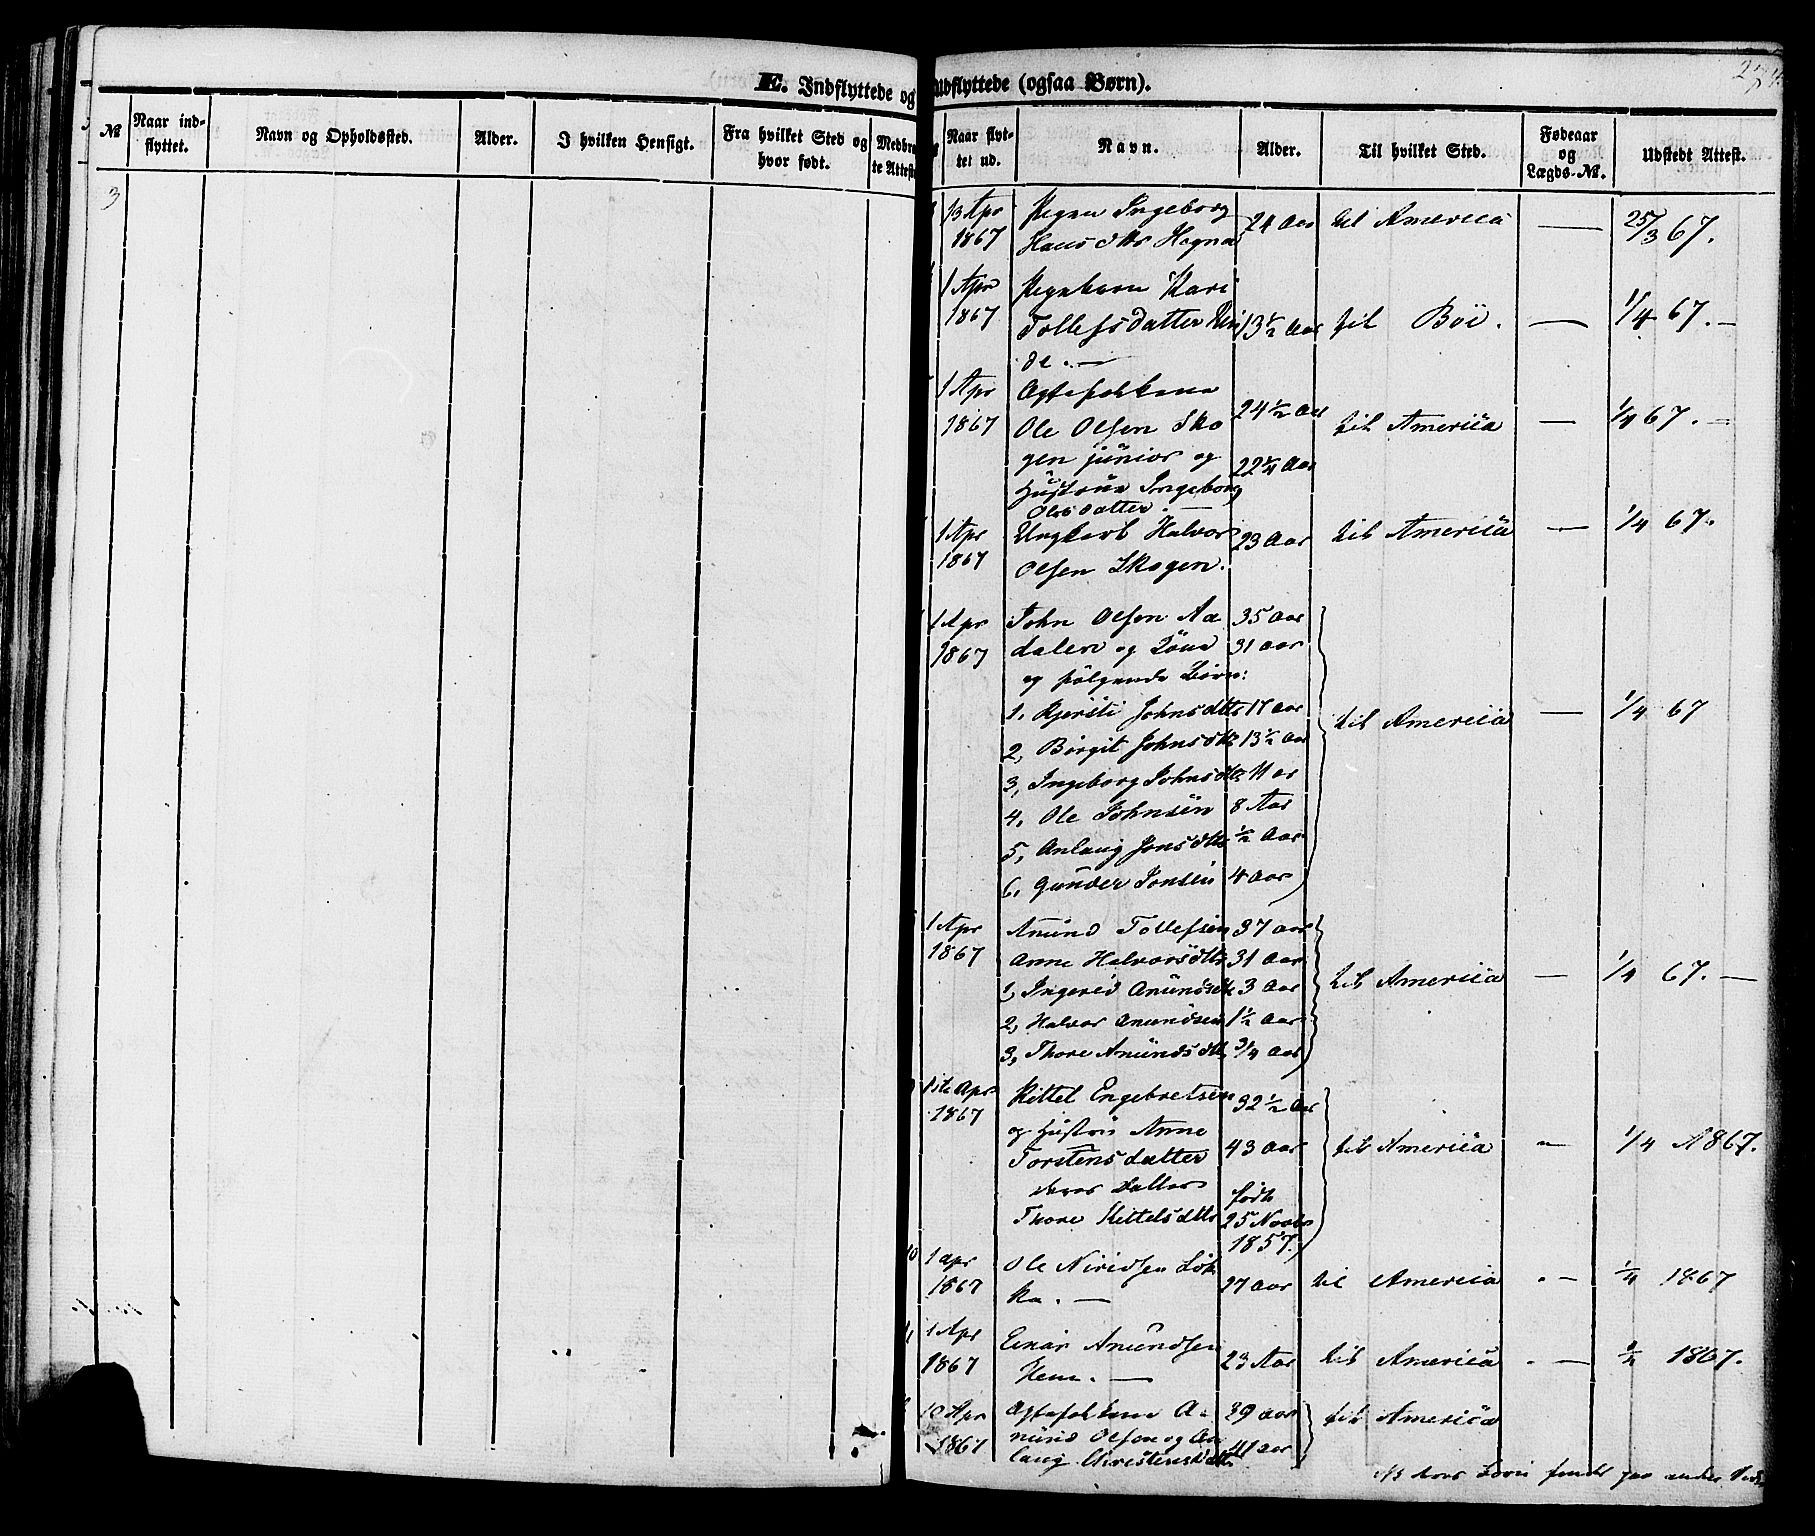 E. Indflyttede og Udflyttede (ogsaa Børn).
№
Naar ind-
flyttet.
Navn og Opholdssted.
Alder.
I hvilken Hensigt.
Fra hvilket Sted og
hvor født.
Medbra
te Attest
3
Naar flyt-
tet ud.
Navn.
Alder.
Til hvilket Sted.
Fødeaar
og
Lægds-№.
Udstedt Attest.
13 Apr Ingeborg 24 Aar til America — 25/3 67.
1867 Hansdtr Hogna
1 Apr Kari
1867 Tollefsdatter 13 1/2 Aar til Böe. — 1/4 67. —
de. —
1 Apr Ægtefolkene
1867 Ole Olsen Sko 24 1/2 Aar til America — 1/4 67. —
gen junior og 22 1/4 Aar
Hustrue Ingeborg
Olesdatter. —
1 Apr Ungkarl Halvor 23 Aar til America — 1/4 67.
1867 Olsen Skogen.
1 Apr John Olsen Aa 35 Aar
1867 dalen og Kone 31 aar
og følgende Børn:
1, Kjersti Johnsdtr 17 aar til America — 1/4 67
2, Birgit Johnsdtr 13 1/2 Aar
3, Ingeborg Johnsdtr 11 ar
4, Ole Johnsen 8 Aar
5, Anlaug Jonsdtr 1/2 Aar
6, Gunder Jonsen 4 Aar
1 Apr Anund Tollefsen 37 aar
1867 Anne Halvorsdtr 31 Aar
1, Ingerid Anundsdtr 3 Aar til America — 1/4 67. —
2, Halvor Anundsen 1 1/2 Aar
3, Thore Anundsdtr 3/4 Aar
1ste Apr Kittel Engebretsen 32 1/2 Aar
1867 og Hustru Anne
Torstensdatter 43 Aar til America — 1/4 1867.
deres Datter født
Thore Kittelsdtr 25 Novbr
1857.
10 1 apr Ole Niridsen Lök
1867 ka. — 27 aar til America — 1/4 1867
1 Apr Einar Anundsen
1867 23 Aar til America — 1867.
10 Apr Ægtefolkene A- 39 aar til America
1867 nund Olsen og An
laug Christensdtr 41 aar
NB deres Børn paa anden Side